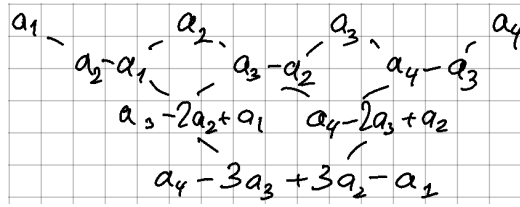 a₁ a₂ a₃ a₄
a₂-a₁ a₃-a₂ a₄-a₃
a₃-2a₂+a₁ a₄-2a₃+a₂
a₄-3a₃+3a₂-a₁